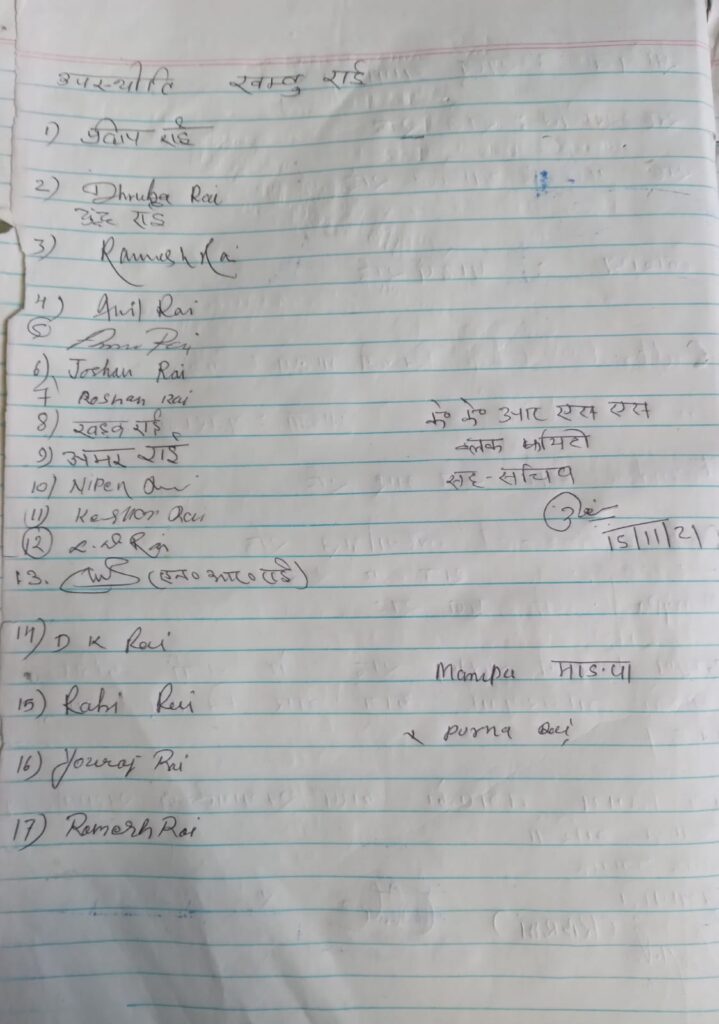 उपस्थीति खम्बु राई
1) प्रदिप राई
2) Dhruba Rai
राई
3) Ramesh Rai
4) Anil Rai
5 Rai
6) Joshan Rai
7 Roshan Rai
8) खड्क राई
9) अमर राई
10) Nipen
11) Keshar Rai
12 Rai
13. (एन० आर० राई)
के० के० आर एस एस
ब्लक कमिटी
सह-सचिव
15/11/21
14) D K Rai
15) Rabi Rai
16) Youraj Rai
17) Ramesh Rai
Manipu
x Purna Rai